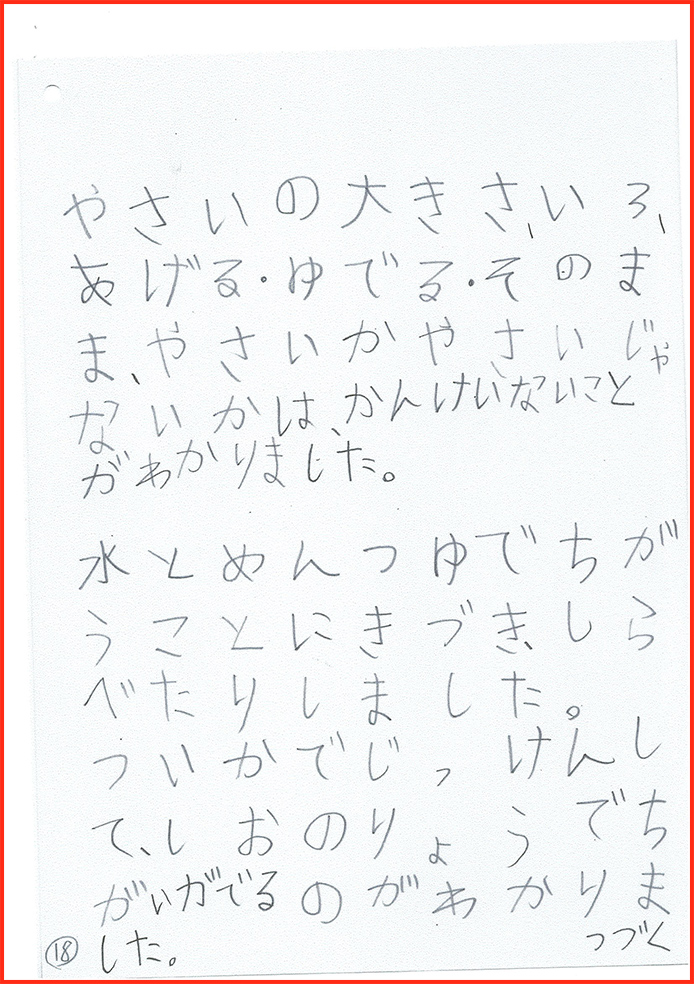 やさいの大きさ、いろ、
あげる・ゆでる・そのま
ま、やさいかやさいじゃ
ないかは、かんけいないこと
がわかりました。
水とめんつゆでちが
うことにきづき、しら
べたりしました。
ついかでじっけんし
て、しおのりょうでち
がいがでるのがわかりま
した。
つづく
18